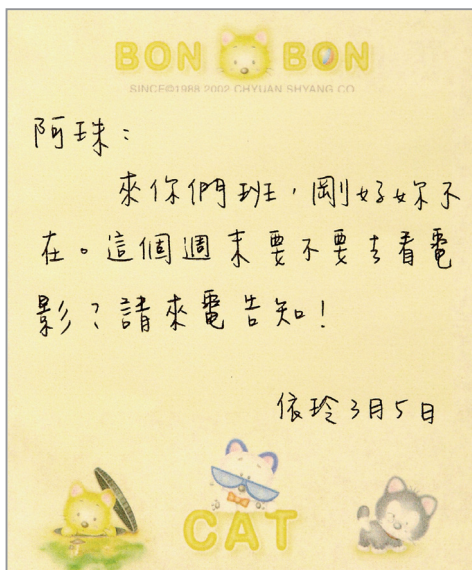 BON BON
SINCE©1988.2002 CHYUAN SHYANG CO.
阿珠：
來你們班，剛好妳不
在。這個週末要不要去看電
影？請來電告知！
依玲3月5日
CAT